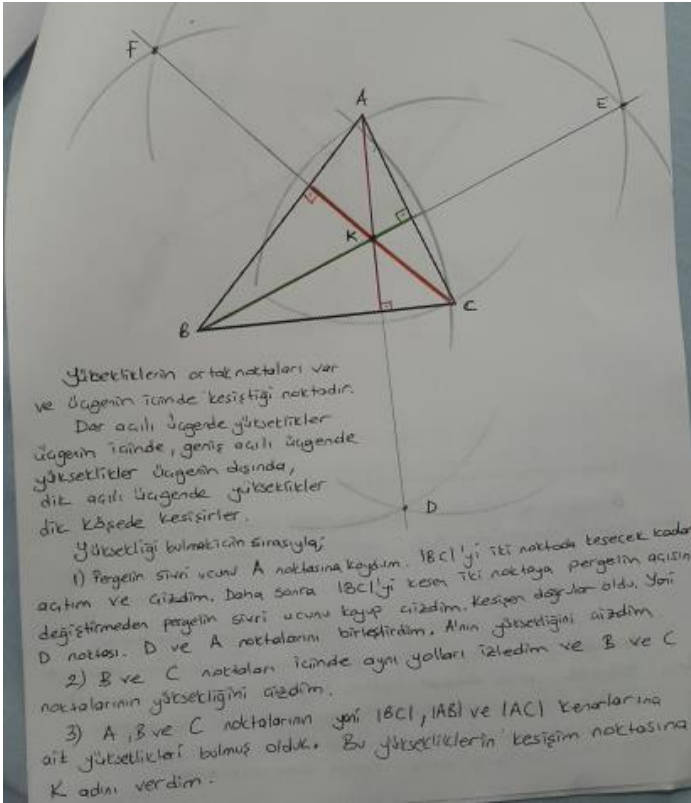 F
A
E
K
B
C
D
Yükekliklerin ortak noktaları var
ve üçgenin içinde kesiştiği noktadır.
Dar açılı üçgende yükseklikler
üçgenin içinde, geniş açılı üçgende
yükseklikler üçgenin dışında,
dik açılı üçgende yükseklikler
dik köşede kesişirler.
Yüksekliği bulmak için sırasıyla;
1) Pergelin sivri ucunu A noktasına koydum. |BC|'yi iki noktada kesecek kadar
açtım ve çizdim. Daha sonra |BC|'yi kesen iki noktaya pergelin açısın
değiştirmeden pergelin sivri ucunu koyup çizdim. Kesişen doğrular oldu. Yani
D noktası. D ve A noktalarını birleştirdim. A'nın yüksekliğini çizdim
2) B ve C noktaları içinde aynı yolları izledim ve B ve C
noktalarının yüksekliğini çizdim.
3) A, B ve C noktalarının yani |BC|, |AB| ve |AC| kenarlarına
ait yükseklikleri bulmuş olduk. Bu yüksekliklerin kesişim noktasına
K adını verdim.